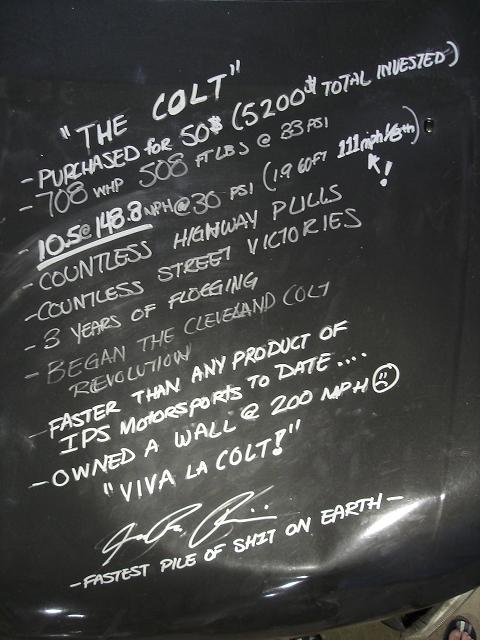 "THE COLT"
- PURCHASED for 50$ (5200$ TOTAL INVESTED)
- 708 WHP 508 FT LBS @ 33 PSI
- 10.5@148.8MPH@30 PSI (1.9 60FT 111mph/8th)
!
- COUNTLESS HIGHWAY PULLS
- COUNTLESS STREET VICTORIES
- 3 YEARS OF FLOGGING
- BEGAN THE CLEVELAND COLT
REVOLUTION
- FASTER THAN ANY PRODUCT OF
IPS MOTORSPORTS TO DATE....
- OWNED A WALL @ 200 MPH
"VIVA LA COLT!"
- FASTEST PILE OF SHIT ON EARTH -